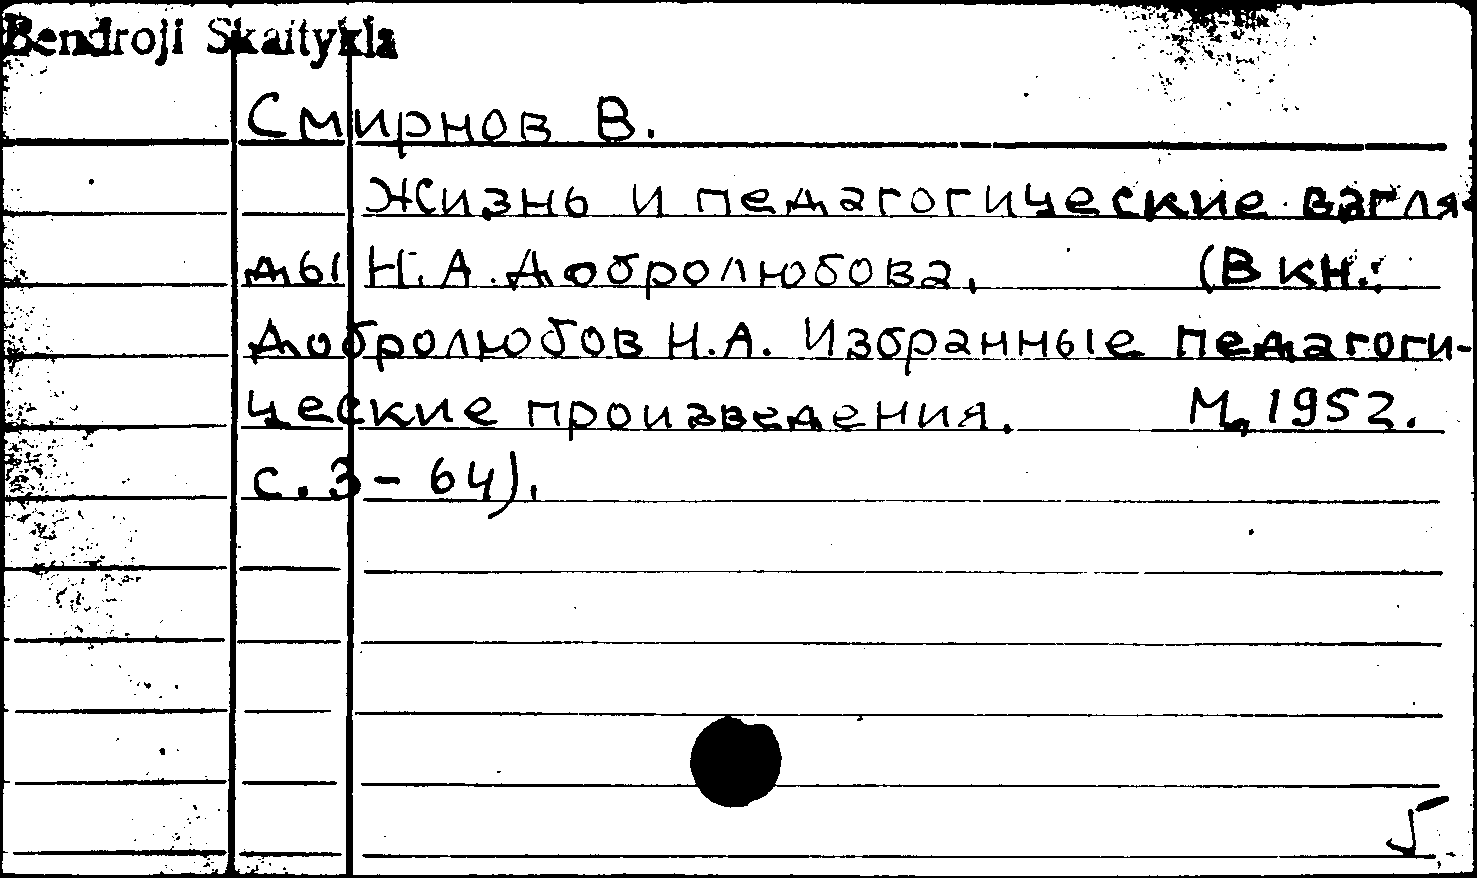 Bendroji Skaitykla
Смирнов В.
Жизнь и педагогические взгля-
ды Н.А.Добролюбова. (В кн.:
Добролюбов Н.А. Избранные педагоги-
ческие произведения. М., 1952.
с. 3 - 64).
5